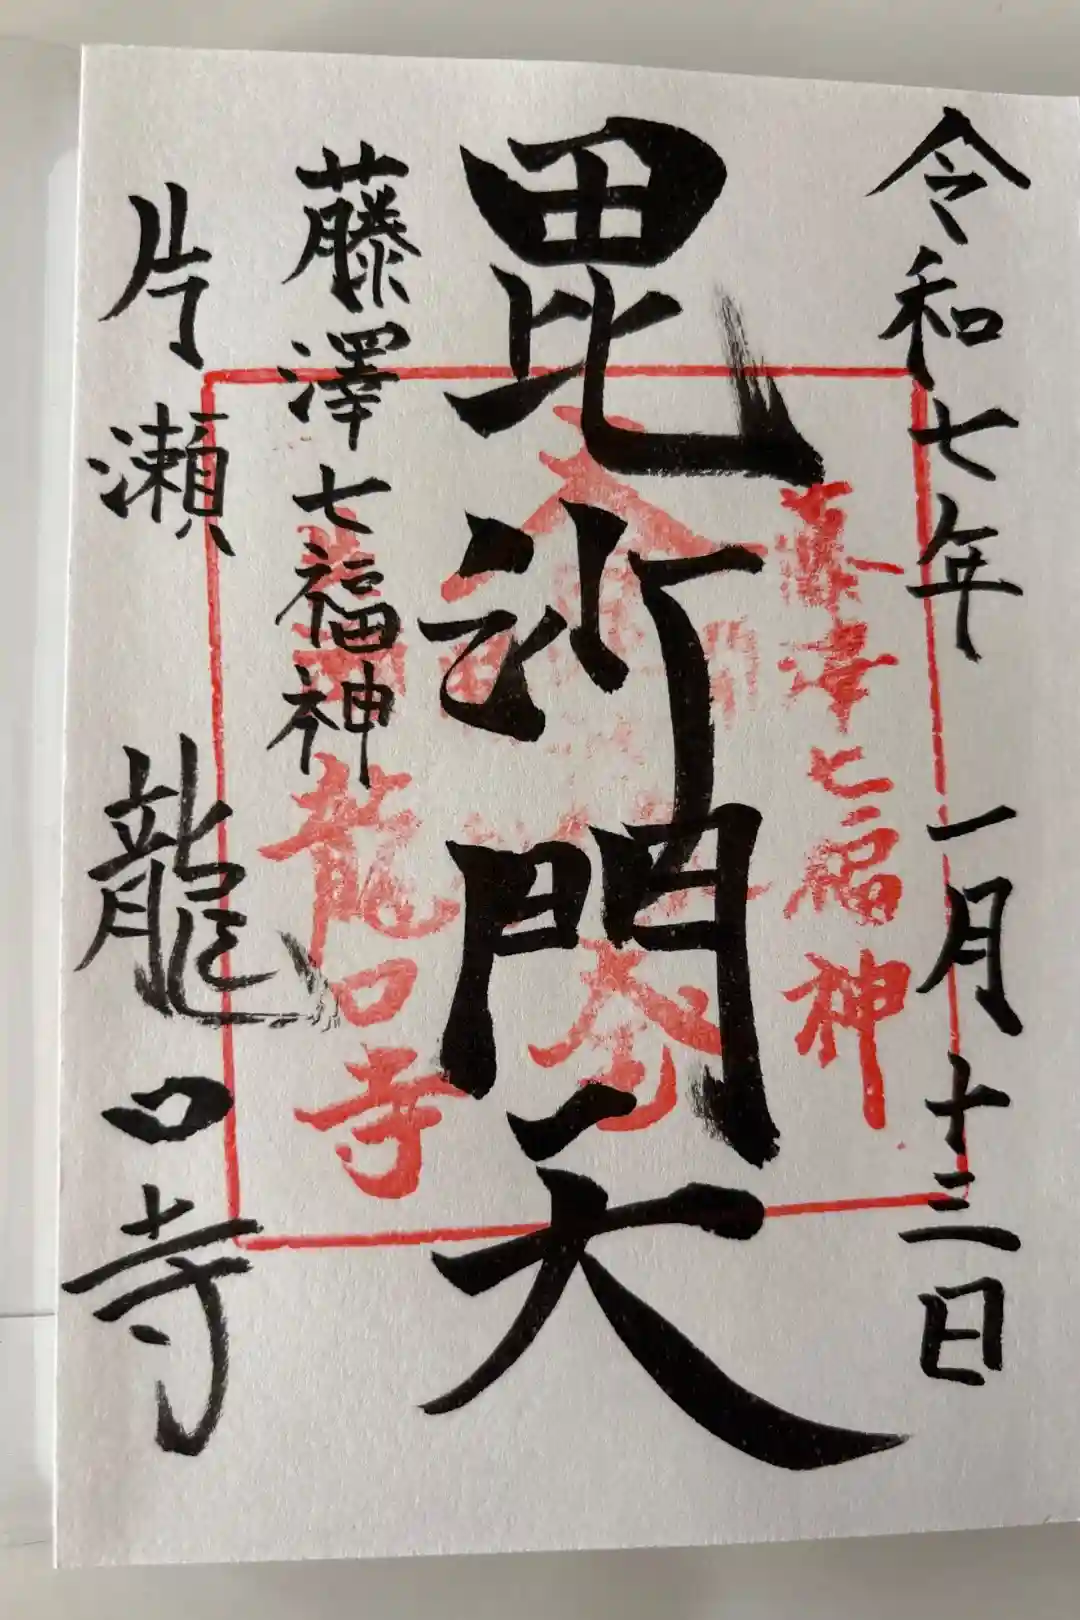 令和七年 一月十三日
毘沙門天
藤澤七福神
片瀬 龍口寺
藤澤七福神
龍口寺